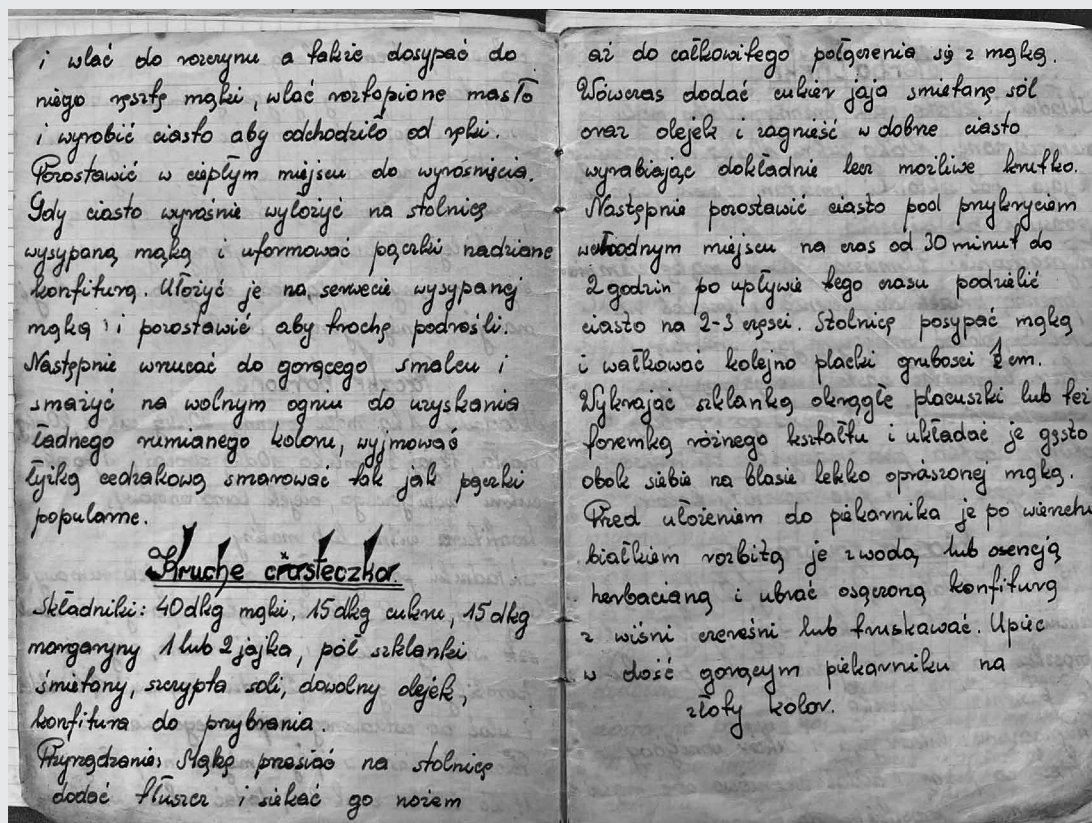 i wlać do rozczynu a także dosypać do
niego resztę mąki, wlać roztopione masło
i wyrobić ciasto aby odchodziło od ręki.
Pozostawić w ciepłym miejscu do wyrośnięcia.
Gdy ciasto wyrośnie wyłożyć na stolnicę
wysypaną mąką i uformować pączki nadziane
konfiturą. Ułożyć je na serwecie wysypanej
mąką i pozostawić aby trochę podrośli.
Następnie wrzucać do gorącego smalcu i
smażyć na wolnym ogniu do uzyskania
ładnego rumianego koloru, wyjmować
łyżką cedzakową smarować tak jak pączki
popularne.
Kruche ciasteczka.
Składniki: 40 dkg mąki, 15 dkg cukru, 15 dkg
margaryny 1 lub 2 jajka, pół szklanki
śmietany, szczypta soli, dowolny olejek,
konfitura do przybrania.
Przyrządzanie: Mąkę przesiać na stolnicę
dodać tłuszcz i siekać go nożem
aż do całkowitego połączenia się z mąką.
Wówczas dodać cukier jaja śmietanę sól
oraz olejek i zagnieść w dobne ciasto
wyrabiając dokładnie lecz możliwe krutko.
Następnie pozostawić ciasto pod przykryciem
w chłodnym miejscu na czas od 30 minut do
2 godzin po upływie tego czasu podzielić
ciasto na 2-3 części. Stolnicę posypać mąką
i wałkować kolejno placki grubosci ½ cm.
Wykrajać szklanką okrągłe placuszki lub też
foremką różnego kształtu i układać je gęsto
obok siebie na blasie lekko oprászonej mąką.
Przed ułożeniem do piekarnika je po wierzchu
białkiem rozbitą je z wodą lub esencją
herbacianą i ubrać osączoną konfiturą
z wiśni czereśni lub truskawac. Upiec
w dość gorącym piekarniku na
złoty kolor.